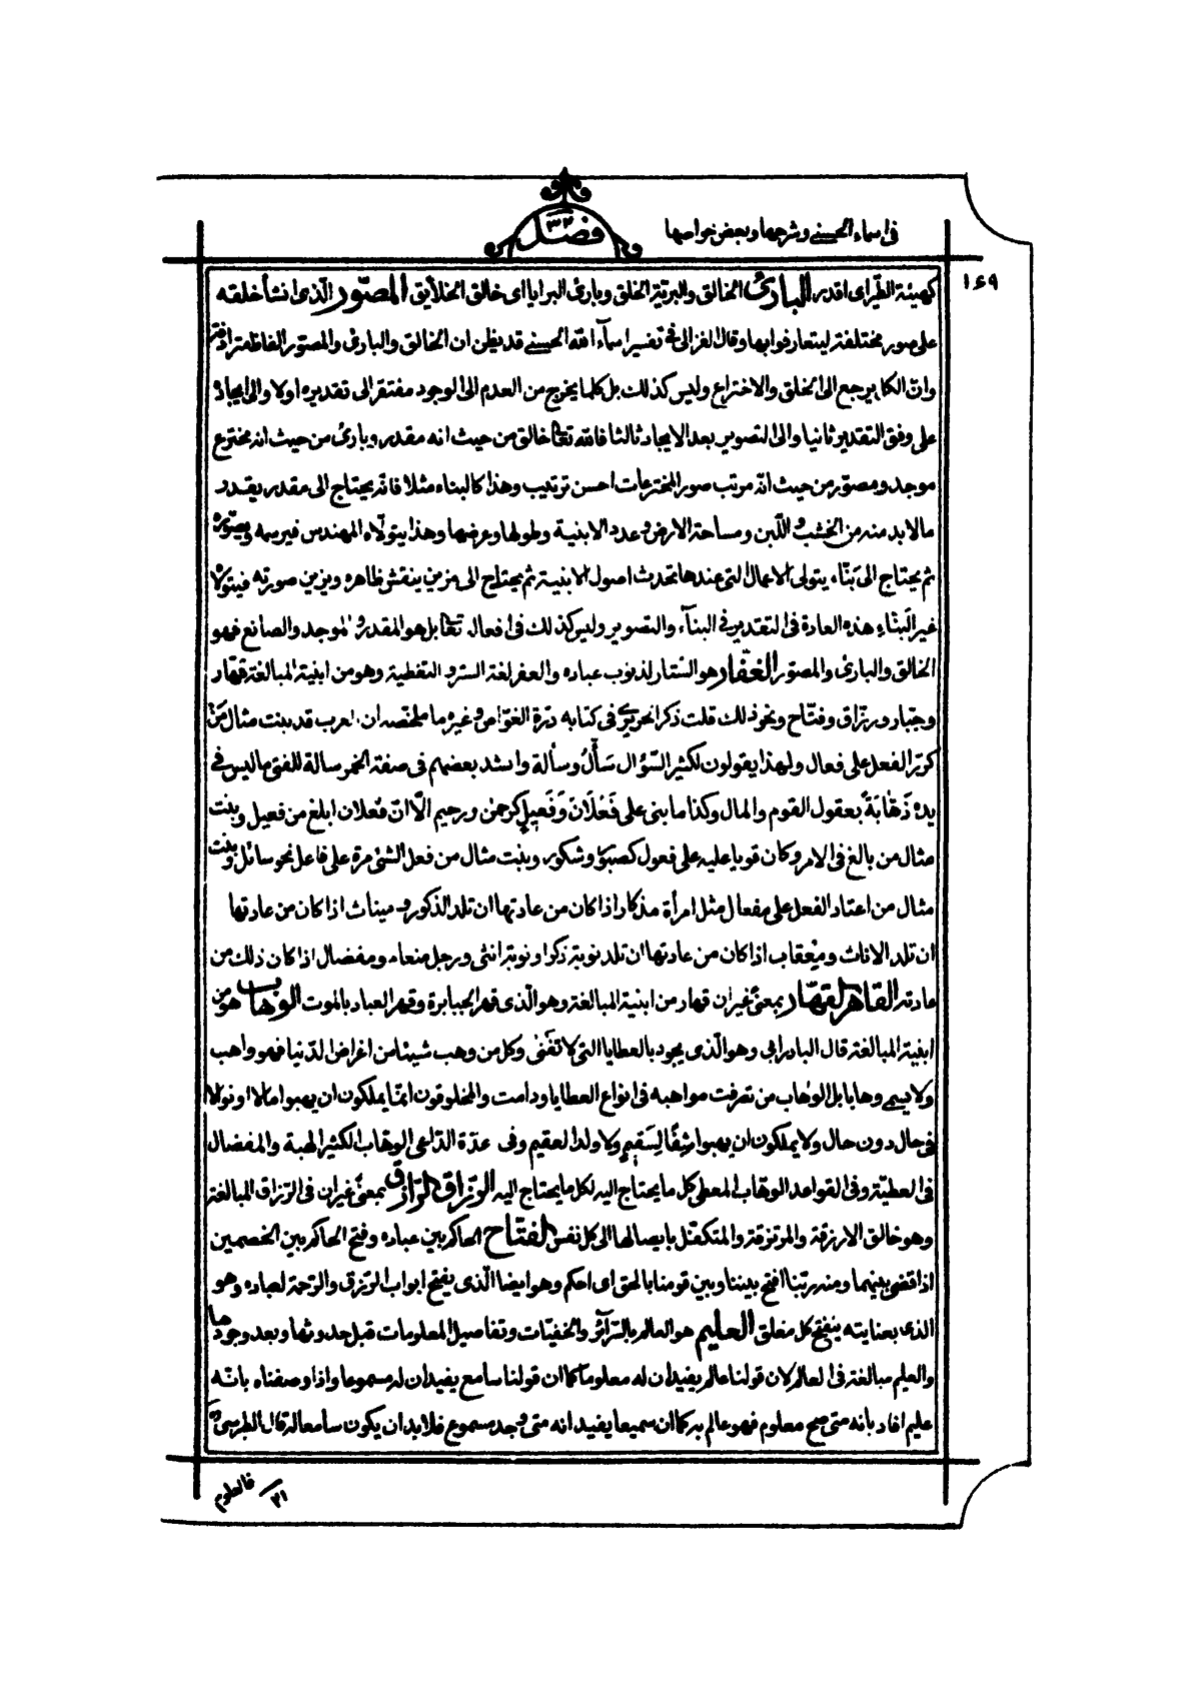 فى اسماء الحسنى وشرحها وبعض خواصها
فصل ٣٢
١٤٩
كهيئة الطير اى اقدر البارئ الخالق والبرية الخلق وبارئ البرايا اى خالق الخلايق المصور الذى انشأ خلقه
على صور مختلفة ليتعارفوا بها وقال الغزالى فى تفسير اسمآء الله الحسنى قد يظن ان الخالق والبارئ والمصور الفاظ مترادفة
وان الكل يرجع الى الخلق والاختراع وليس كذلك بل كلما يخرج من العدم الى الوجود مفتقر الى تقديره اولا والى ايجاده
على وفق التقدير ثانيا والى التصوير بعد الايجاد ثالثا فالله تعالى خالق من حيث انه مقدر وبارئ من حيث انه مخترع
موجد ومصور من حيث انه مرتب صور المخترعات احسن ترتيب وهذا كالبناء مثلا فانه يحتاج الى مقدر يقدر
ما لا بد منه من الخشب واللبن ومساحة الارض وعدد الابنية وطولها وعرضها وهذا يتولاه المهندس فيرسمه ويصوره
ثم يحتاج الى بَنّاء يتولى الاعمال التى عندها تحدث اصول الابنية ثم يحتاج الى مزين ينقش ظاهره ويزين صورته فيتولاه
غير البنّاءِ هذه العادة فى التقدير فى البنآء والتصوير وليس كذلك فى افعال تعالى بل هو المقدر والموجد والصانع فهو
الخالق والبارئ والمصور الغفار هو الستار لذنوب عباده والغفر لغة الستر والتغطية وهو من ابنية المبالغة قهار
وجبار ورزاق وفتاح ونحو ذلك قلت ذكر الحريرى فى كتابه درة الغواص وغيره ما ملخصه ان العرب قد بنت مثال من
كرر الفعل على فعال ولهذا يقولون لكثير السؤال سَأّلُ وسألة وانشد بعضهم فى صفة الخمر سالة للفتى ما ليس فى
يده ذَهّابَةً بعقول القوم والمال وكذا ما بنى على فَعْلَان وَفَعيلٍ كرحمن ورحيم الّا انّ فعلان ابلغ من فعيل وبنت
مثال من بالغ فى الامر وكان قويا عليه على فعول كصبور وشكور وبنت مثال من فعل الشئ مرة على فاعل نحو سائل وبنت
مثال من اعتاد الفعل على مفعال مثل امرأة مذكار اذا كان من عادتها ان تلد الذكور وميناث اذا كان من عادتها
ان تلد الاناث ومِعْقاب اذا كان من عادتها ان تلد نوبة ذكرا ونوبة انثى ورجل منعاء ومفضال اذا كان ذلك من
عادته القاهر القهار بمعنى غير ان قهار من ابنية المبالغة وهو الّذى قهر الجبابرة وقهر العباد بالموت الوهاب هو من
ابنية المبالغة قال البادرابى وهو الّذى يجود بالعطايا التى لا تفنى وكل من وهب شيئا من اغراض الدنيا فهو واهب
ولا يسمى وهابا بل الوهاب من تصرفت مواهبه فى انواع العطايا ودامت والمخلوقون انما يملكون ان يهبوا مالا او نوالا
فى حال دون حال ولا يملكون ان يهبوا شِفًا لِسَقيمٍ ولا ولدا لعقيم وفى عدّة الدّاعى الوهاب الكثير الهبة والمفضال
فى العطيّة وفى القواعد الوهاب المعطى كل ما يحتاج اليه لكل ما يحتاج اليه الرزاق الرازق بمعنى غير ان فى الرزاق المبالغة
وهو خالق الارزقة والمرتزقة والمتكفّل بايصالها الى كل نفس الفتاح الحاكم بين عباده وفتح الحاكم بين الخصمين
اذا قضى بينهما ومنه ربّنا افتح بيننا وبين قومنا بالحق اى احكم وهو ايضا الّذى يفتح ابواب الرزق والرحمة لعباده وهو
الذى بعنايته ينفتح كل مغلق العليم هو العالم بالسّرآئر والخفيّات وتفاصيل المعلومات قبل حدوثها وبعد وجودها
والعليم مبالغة فى العالم لان قولنا عالم يفيد ان له معلوما كما ان قولنا سامع يفيد ان له مسموعا واذا وصفناه بانّه
عليم افاد بانه متى صح معلوم فهو عالم به كما ان سميعا يفيد انه متى وجد مسموع فلا بد ان يكون سامعا له قال الطبرسى
٢١
فالعلوم